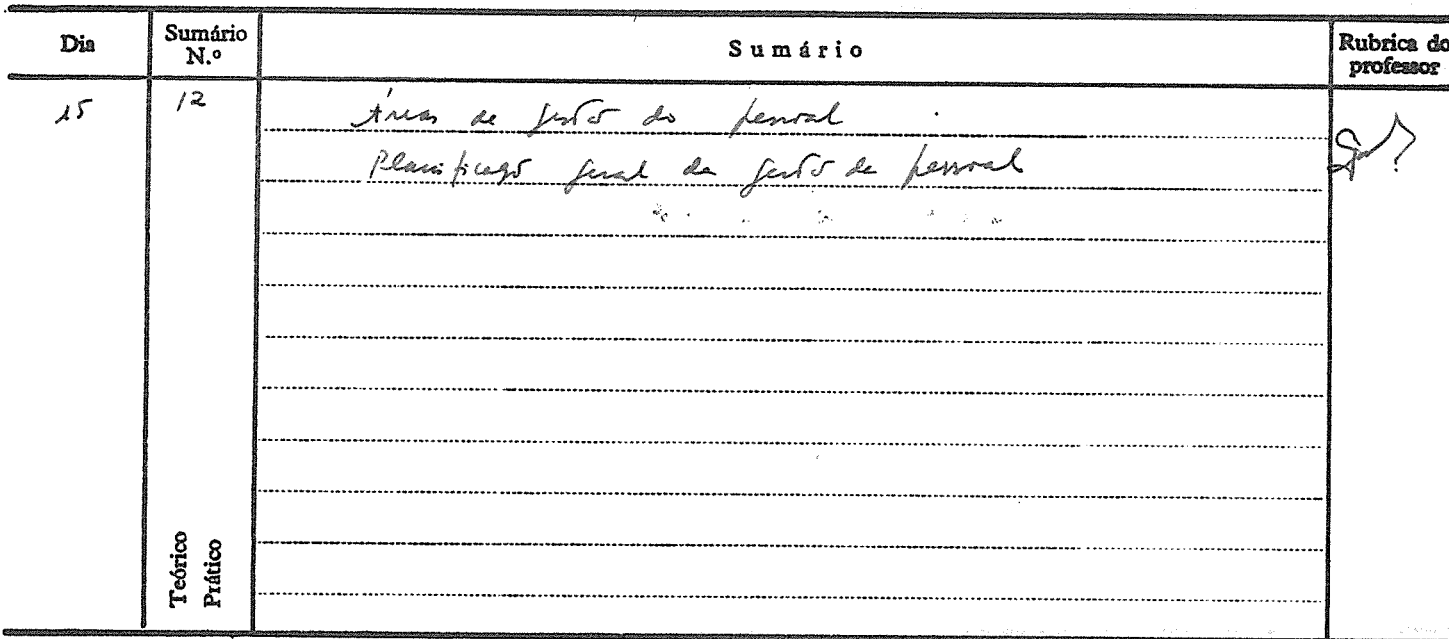 Dia
Sumário N.º
Sumário
Rubrica do professor
15
12
Áreas de gestão do pessoal
Planificação geral da gestão de pessoal
Teórico
Prático